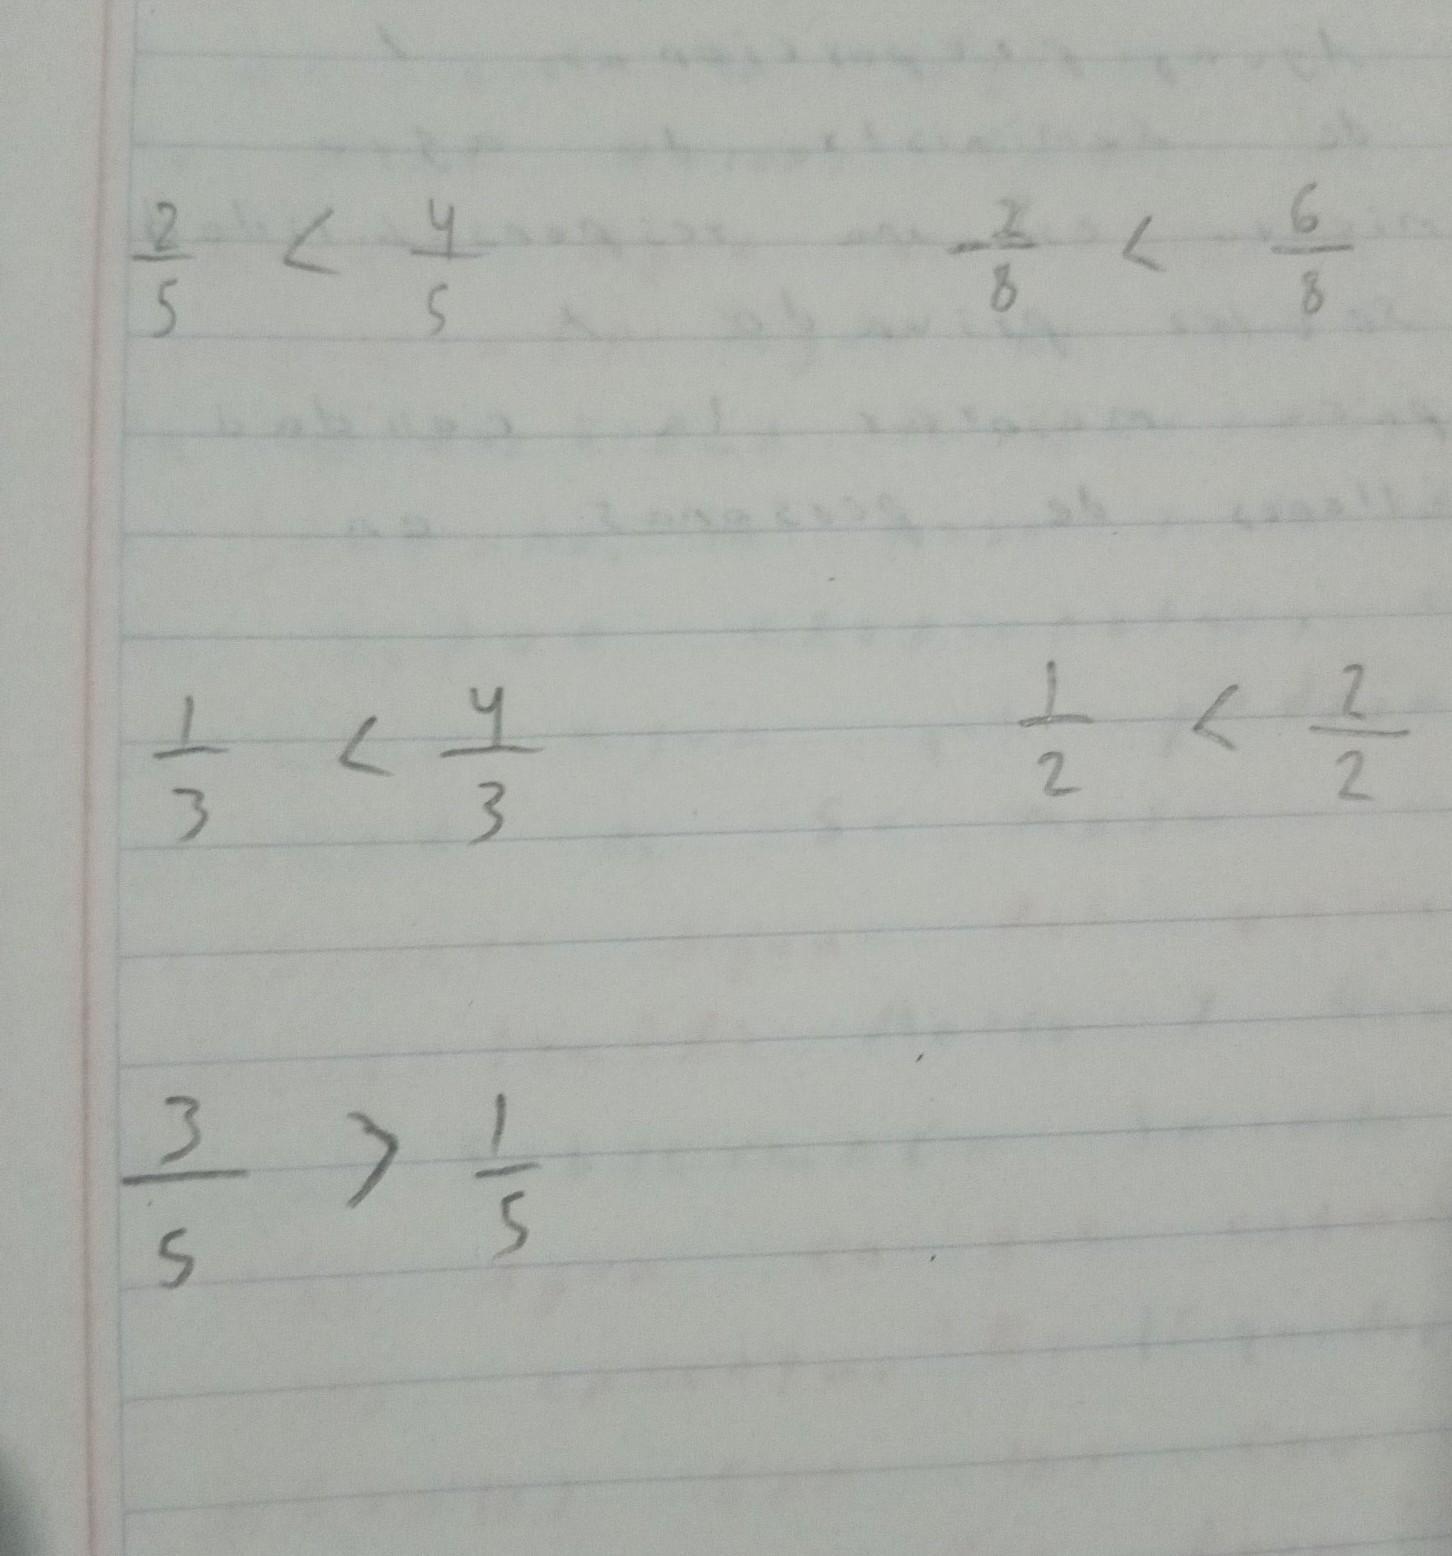 2/5 < 4/5    2/8 < 6/8
1/3 < 4/3    1/2 < 2/2
3/5 > 1/5